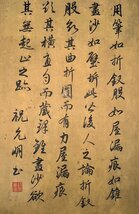 用筆如折釵股如屋漏痕如錐
畫沙如壁坼此後人之論折釵
股欲其曲折圓而有力屋漏痕
欲其橫直勻而藏鋒錐畫沙欲
其無起止之跡
祝允明書